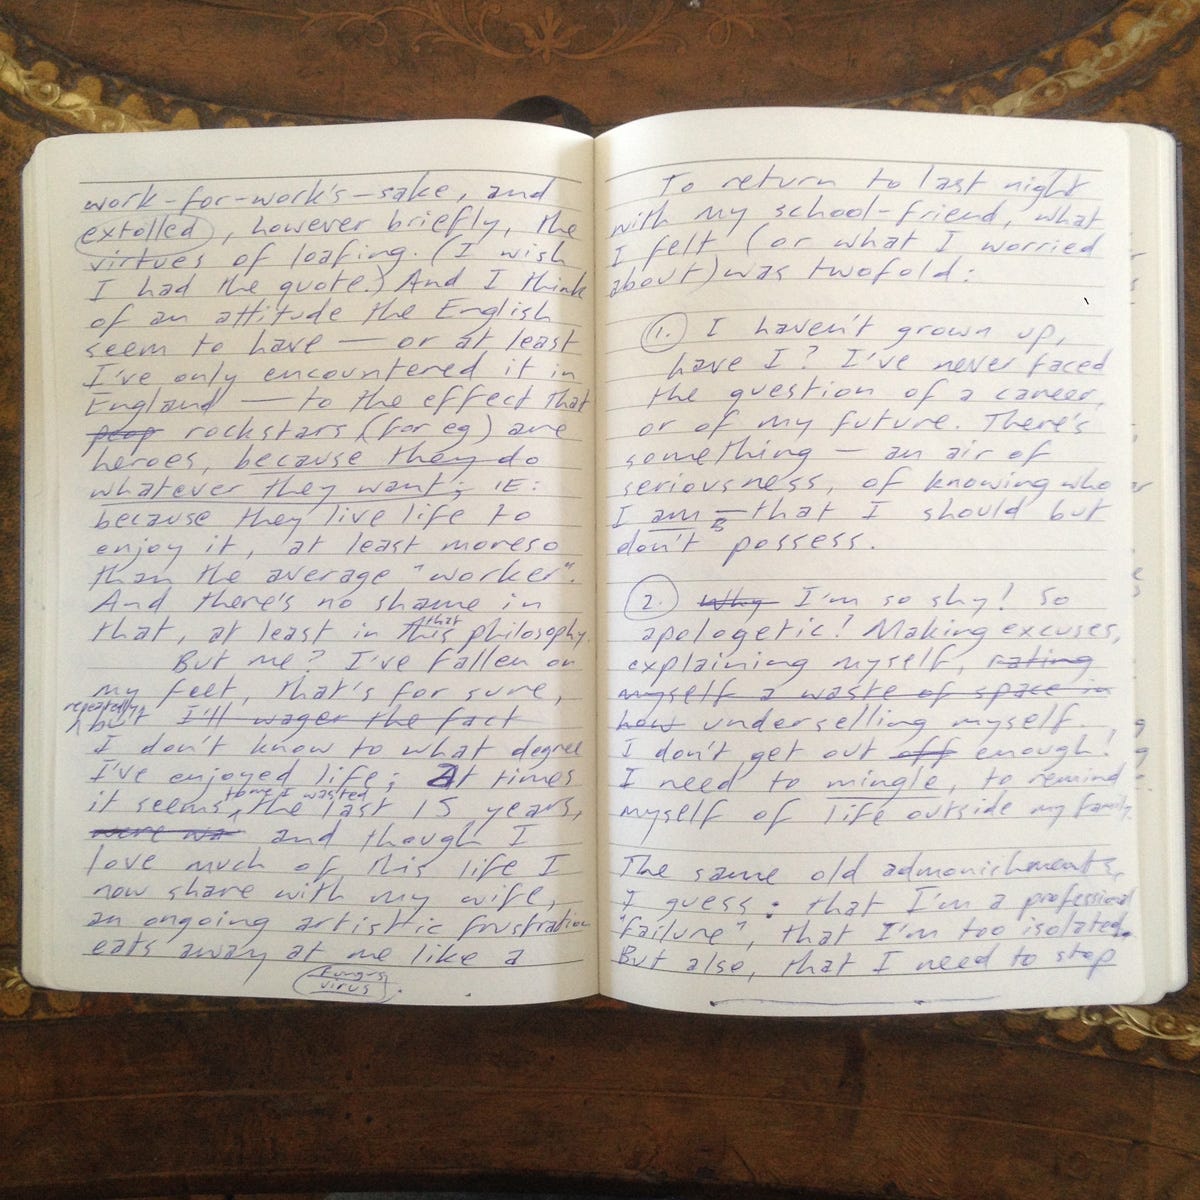 work-for-work's-sake, and
extolled, however briefly, the
virtues of loafing. (I wish
I had the quote.) And I think
of an attitude the English
seem to have — or at least
I've only encountered it in
England — to the effect that
peop rockstars (for eg) are
heroes, because they do
whatever they want; IE:
because they live life to
enjoy it, at least moreso
than the average "worker".
And there's no shame in
that
that, at least in this philosophy.
But me? I've fallen on
my feet, that's for sure,
repeatedly,
but I'll wager the fact
I don't know to what degree
I've enjoyed life; At times
to me I wasted
it seems the last 15 years,
were wa and though I
love much of this life I
now share with my wife,
an ongoing artistic frustration
eats away at me like a
fungus
virus.
To return to last night
with my school-friend, what
I felt (or what I worried
about) was twofold:
1. I haven't grown up,
have I? I've never faced
the question of a career,
or of my future. There's
something — an air of
seriousness, of knowing who
I am — that I should but
don't possess.
2. Why I'm so shy! So
apologetic! Making excuses,
explaining myself, rating
myself a waste of space in
how underselling myself.
I don't get out off enough!
I need to mingle, to remind
myself of life outside my family.
The same old admonishments,
I guess: that I'm a professional
"failure", that I'm too isolated.
But also, that I need to stop